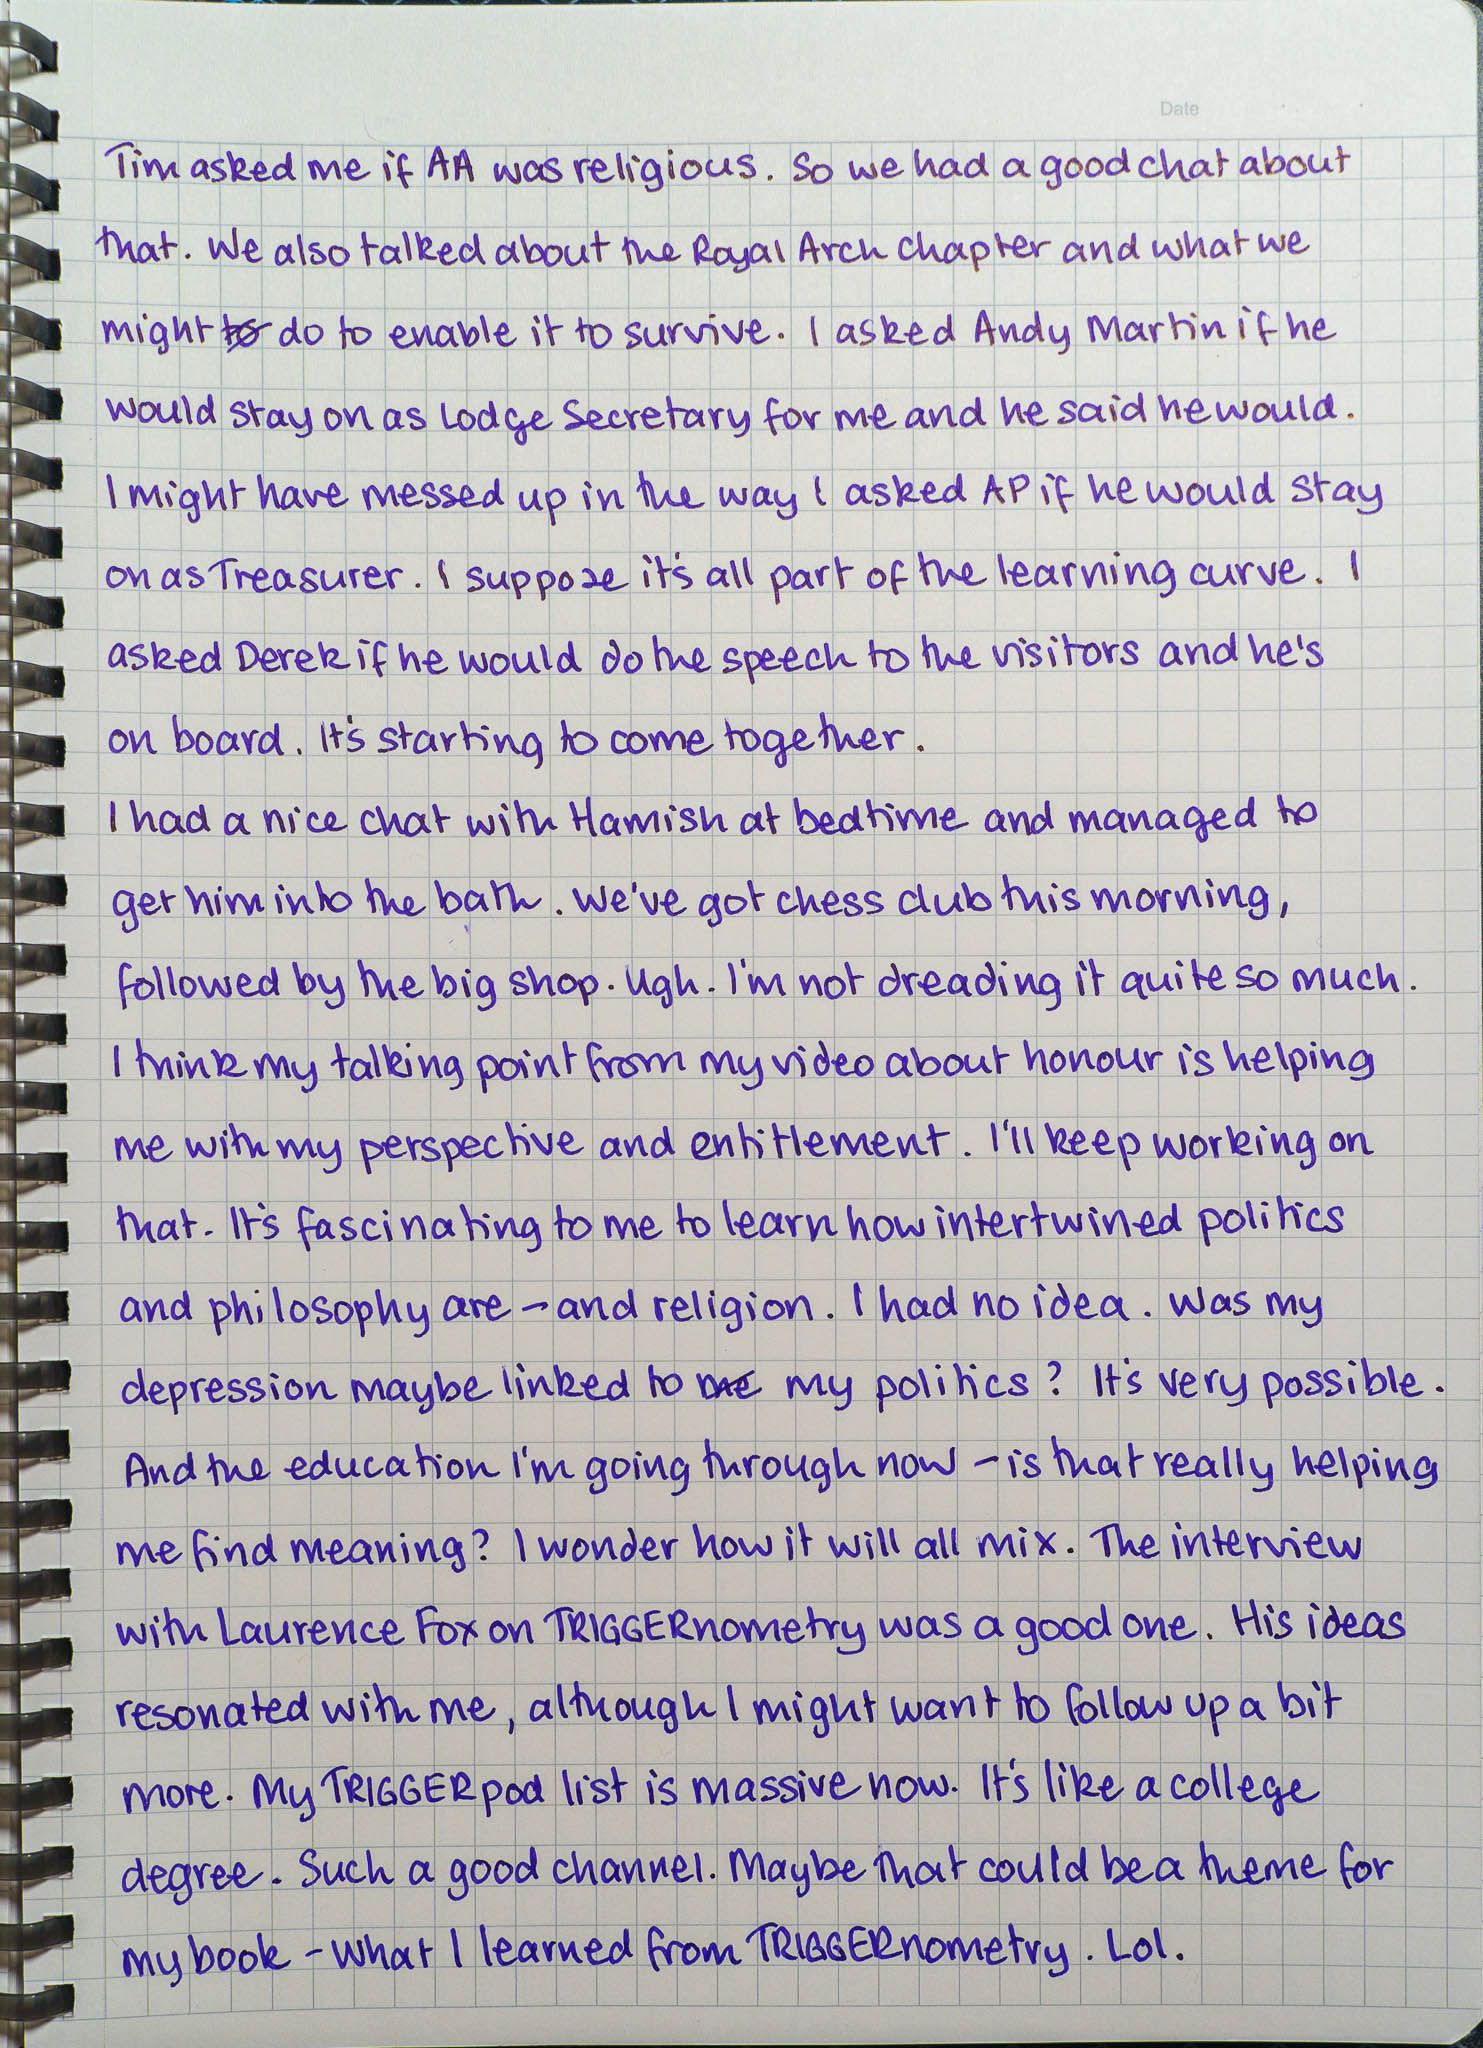 Date
Tim asked me if AA was religious. So we had a good chat about
that. We also talked about the Royal Arch Chapter and what we
might to do to enable it to survive. I asked Andy Martin if he
would stay on as Lodge Secretary for me and he said he would.
I might have messed up in the way I asked AP if he would stay
on as Treasurer. I suppose it's all part of the learning curve. I
asked Derek if he would do the speech to the visitors and he's
on board. It's starting to come together.
I had a nice chat with Hamish at bedtime and managed to
get him into the bath. We've got chess club this morning,
followed by the big shop. Ugh. I'm not dreading it quite so much.
I think my talking point from my video about honour is helping
me with my perspective and entitlement. I'll keep working on
that. It's fascinating to me to learn how intertwined politics
and philosophy are - and religion. I had no idea. Was my
depression maybe linked to me my politics? It's very possible.
And the education I'm going through now - is that really helping
me find meaning? I wonder how it will all mix. The interview
with Laurence Fox on TRIGGERnometry was a good one. His ideas
resonated with me, although I might want to follow up a bit
more. My TRIGGERpod list is massive now. It's like a college
degree. Such a good channel. Maybe that could be a theme for
my book - What I learned from TRIGGERnometry. Lol.